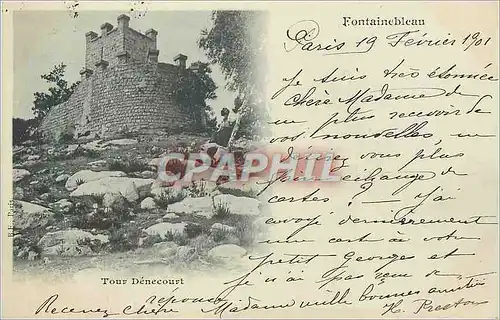 Fontainebleau
Paris 19 Février 1901
je suis très étonnée
chère Madame de
ne plus recevoir de
vos nouvelles, ne
désirez vous plus
faire échange de
cartes? — j'ai
envoyé dernièrement
une carte à votre
petit Georges et
je n'ai pas reçu de
réponse
Recevez chère Madame mille bonnes amitiés
H. Preston
Tour Dénecourt
CPAPHIL